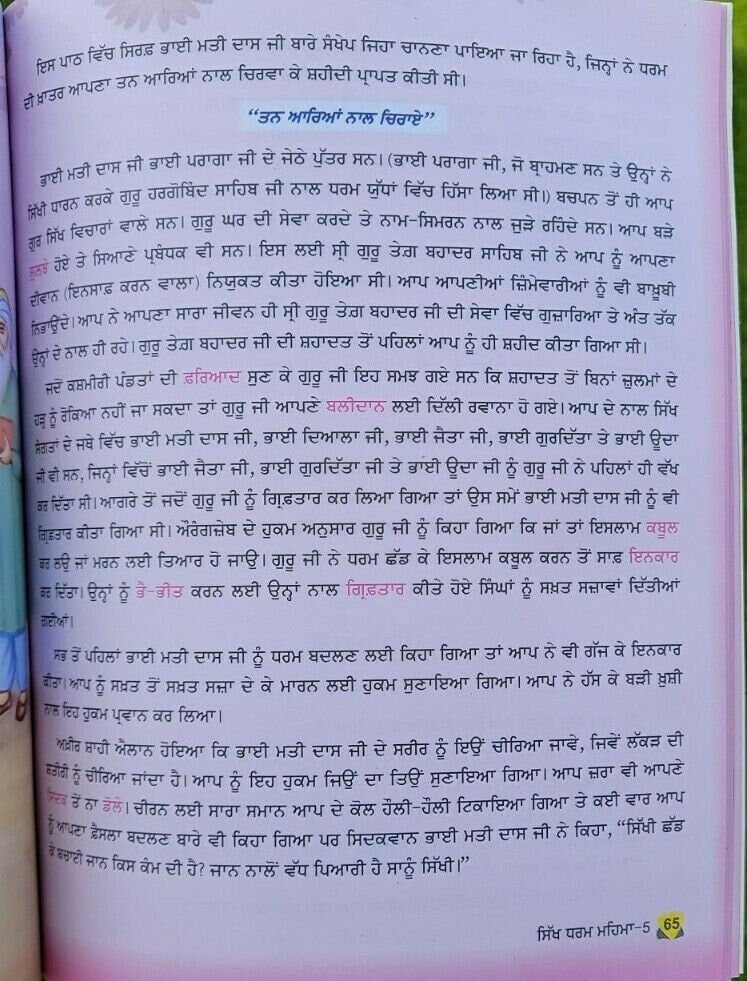 ਇਸ ਪਾਠ ਵਿੱਚ ਸਿਰਫ਼ ਭਾਈ ਮਤੀ ਦਾਸ ਜੀ ਬਾਰੇ ਸੰਖੇਪ ਜਿਹਾ ਚਾਨਣਾ ਪਾਇਆ ਜਾ ਰਿਹਾ ਹੈ, ਜਿਨ੍ਹਾਂ ਨੇ ਧਰਮ
ਦੀ ਖ਼ਾਤਰ ਆਪਣਾ ਤਨ ਆਰਿਆਂ ਨਾਲ ਚਿਰਵਾ ਕੇ ਸ਼ਹੀਦੀ ਪ੍ਰਾਪਤ ਕੀਤੀ ਸੀ।
“ਤਨ ਆਰਿਆਂ ਨਾਲ ਚਿਰਾਏ”
ਭਾਈ ਮਤੀ ਦਾਸ ਜੀ ਭਾਈ ਪਰਾਗਾ ਜੀ ਦੇ ਜੇਠੇ ਪੁੱਤਰ ਸਨ। (ਭਾਈ ਪਰਾਗਾ ਜੀ, ਜੋ ਬ੍ਰਾਹਮਣ ਸਨ ਤੇ ਉਨ੍ਹਾਂ ਨੇ
ਸਿੱਖੀ ਧਾਰਨ ਕਰਕੇ ਗੁਰੂ ਹਰਗੋਬਿੰਦ ਸਾਹਿਬ ਜੀ ਨਾਲ ਧਰਮ ਯੁੱਧਾਂ ਵਿੱਚ ਹਿੱਸਾ ਲਿਆ ਸੀ।) ਬਚਪਨ ਤੋਂ ਹੀ ਆਪ
ਗੁਰ ਸਿੱਖ ਵਿਚਾਰਾਂ ਵਾਲੇ ਸਨ। ਗੁਰੂ ਘਰ ਦੀ ਸੇਵਾ ਕਰਦੇ ਤੇ ਨਾਮ-ਸਿਮਰਨ ਨਾਲ ਜੁੜੇ ਰਹਿੰਦੇ ਸਨ। ਆਪ ਬੜੇ
ਸੁਲਝੇ ਹੋਏ ਤੇ ਸਿਆਣੇ ਪ੍ਰਬੰਧਕ ਵੀ ਸਨ। ਇਸ ਲਈ ਸ੍ਰੀ ਗੁਰੂ ਤੇਗ਼ ਬਹਾਦਰ ਸਾਹਿਬ ਜੀ ਨੇ ਆਪ ਨੂੰ ਆਪਣਾ
ਦੀਵਾਨ (ਇਨਸਾਫ਼ ਕਰਨ ਵਾਲਾ) ਨਿਯੁਕਤ ਕੀਤਾ ਹੋਇਆ ਸੀ। ਆਪ ਆਪਣੀਆਂ ਜ਼ਿੰਮੇਵਾਰੀਆਂ ਨੂੰ ਵੀ ਬਾਖ਼ੂਬੀ
ਨਿਭਾਉਂਦੇ। ਆਪ ਨੇ ਆਪਣਾ ਸਾਰਾ ਜੀਵਨ ਹੀ ਸ੍ਰੀ ਗੁਰੂ ਤੇਗ਼ ਬਹਾਦਰ ਜੀ ਦੀ ਸੇਵਾ ਵਿੱਚ ਗੁਜ਼ਾਰਿਆ ਤੇ ਅੰਤ ਤੱਕ
ਉਨ੍ਹਾਂ ਦੇ ਨਾਲ ਹੀ ਰਹੇ। ਗੁਰੂ ਤੇਗ਼ ਬਹਾਦਰ ਜੀ ਦੀ ਸ਼ਹਾਦਤ ਤੋਂ ਪਹਿਲਾਂ ਆਪ ਨੂੰ ਹੀ ਸ਼ਹੀਦ ਕੀਤਾ ਗਿਆ ਸੀ।
ਜਦੋਂ ਕਸ਼ਮੀਰੀ ਪੰਡਤਾਂ ਦੀ ਫ਼ਰਿਆਦ ਸੁਣ ਕੇ ਗੁਰੂ ਜੀ ਇਹ ਸਮਝ ਗਏ ਸਨ ਕਿ ਸ਼ਹਾਦਤ ਤੋਂ ਬਿਨਾਂ ਜ਼ੁਲਮਾਂ ਦੇ
ਹੜ੍ਹ ਨੂੰ ਰੋਕਿਆ ਨਹੀਂ ਜਾ ਸਕਦਾ ਤਾਂ ਗੁਰੂ ਜੀ ਆਪਣੇ ਬਲੀਦਾਨ ਲਈ ਦਿੱਲੀ ਰਵਾਨਾ ਹੋ ਗਏ। ਆਪ ਦੇ ਨਾਲ ਸਿੱਖ
ਸੰਗਤਾਂ ਦੇ ਜਥੇ ਵਿੱਚ ਭਾਈ ਮਤੀ ਦਾਸ ਜੀ, ਭਾਈ ਦਿਆਲਾ ਜੀ, ਭਾਈ ਜੈਤਾ ਜੀ, ਭਾਈ ਗੁਰਦਿੱਤਾ ਤੇ ਭਾਈ ਊਦਾ
ਜੀ ਵੀ ਸਨ, ਜਿਨ੍ਹਾਂ ਵਿੱਚੋਂ ਭਾਈ ਜੈਤਾ ਜੀ, ਭਾਈ ਗੁਰਦਿੱਤਾ ਜੀ ਤੇ ਭਾਈ ਊਦਾ ਜੀ ਨੂੰ ਗੁਰੂ ਜੀ ਨੇ ਪਹਿਲਾਂ ਹੀ ਵੱਖ
ਕਰ ਦਿੱਤਾ ਸੀ। ਆਗਰੇ ਤੋਂ ਜਦੋਂ ਗੁਰੂ ਜੀ ਨੂੰ ਗ੍ਰਿਫ਼ਤਾਰ ਕਰ ਲਿਆ ਗਿਆ ਤਾਂ ਉਸ ਸਮੇਂ ਭਾਈ ਮਤੀ ਦਾਸ ਜੀ ਨੂੰ ਵੀ
ਗ੍ਰਿਫ਼ਤਾਰ ਕੀਤਾ ਗਿਆ ਸੀ। ਔਰੰਗਜ਼ੇਬ ਦੇ ਹੁਕਮ ਅਨੁਸਾਰ ਗੁਰੂ ਜੀ ਨੂੰ ਕਿਹਾ ਗਿਆ ਕਿ ਜਾਂ ਤਾਂ ਇਸਲਾਮ ਕਬੂਲ
ਕਰ ਲਉ ਜਾਂ ਮਰਨ ਲਈ ਤਿਆਰ ਹੋ ਜਾਉ। ਗੁਰੂ ਜੀ ਨੇ ਧਰਮ ਛੱਡ ਕੇ ਇਸਲਾਮ ਕਬੂਲ ਕਰਨ ਤੋਂ ਸਾਫ਼ ਇਨਕਾਰ
ਕਰ ਦਿੱਤਾ। ਉਨ੍ਹਾਂ ਨੂੰ ਭੈ-ਭੀਤ ਕਰਨ ਲਈ ਉਨ੍ਹਾਂ ਨਾਲ ਗ੍ਰਿਫ਼ਤਾਰ ਕੀਤੇ ਹੋਏ ਸਿੰਘਾਂ ਨੂੰ ਸਖ਼ਤ ਸਜ਼ਾਵਾਂ ਦਿੱਤੀਆਂ
ਗਈਆਂ।
ਸਭ ਤੋਂ ਪਹਿਲਾਂ ਭਾਈ ਮਤੀ ਦਾਸ ਜੀ ਨੂੰ ਧਰਮ ਬਦਲਣ ਲਈ ਕਿਹਾ ਗਿਆ ਤਾਂ ਆਪ ਨੇ ਵੀ ਗੱਜ ਕੇ ਇਨਕਾਰ
ਕੀਤਾ। ਆਪ ਨੂੰ ਸਖ਼ਤ ਤੋਂ ਸਖ਼ਤ ਸਜ਼ਾ ਦੇ ਕੇ ਮਾਰਨ ਲਈ ਹੁਕਮ ਸੁਣਾਇਆ ਗਿਆ। ਆਪ ਨੇ ਹੱਸ ਕੇ ਬੜੀ ਖ਼ੁਸ਼ੀ
ਨਾਲ ਇਹ ਹੁਕਮ ਪ੍ਰਵਾਨ ਕਰ ਲਿਆ।
ਅਖ਼ੀਰ ਸ਼ਾਹੀ ਐਲਾਨ ਹੋਇਆ ਕਿ ਭਾਈ ਮਤੀ ਦਾਸ ਜੀ ਦੇ ਸਰੀਰ ਨੂੰ ਇਉਂ ਚੀਰਿਆ ਜਾਵੇ, ਜਿਵੇਂ ਲੱਕੜ ਦੀ
ਸ਼ਤੀਰੀ ਨੂੰ ਚੀਰਿਆ ਜਾਂਦਾ ਹੈ। ਆਪ ਨੂੰ ਇਹ ਹੁਕਮ ਜਿਉਂ ਦਾ ਤਿਉਂ ਸੁਣਾਇਆ ਗਿਆ। ਆਪ ਜ਼ਰਾ ਵੀ ਆਪਣੇ
ਸਿਦਕ ਤੋਂ ਨਾ ਡੋਲੇ। ਚੀਰਨ ਲਈ ਸਾਰਾ ਸਮਾਨ ਆਪ ਦੇ ਕੋਲ ਹੌਲੀ-ਹੌਲੀ ਟਿਕਾਇਆ ਗਿਆ ਤੇ ਕਈ ਵਾਰ ਆਪ
ਨੂੰ ਆਪਣਾ ਫ਼ੈਸਲਾ ਬਦਲਣ ਬਾਰੇ ਵੀ ਕਿਹਾ ਗਿਆ ਪਰ ਸਿਦਕਵਾਨ ਭਾਈ ਮਤੀ ਦਾਸ ਜੀ ਨੇ ਕਿਹਾ, “ਸਿੱਖੀ ਛੱਡ
ਕੇ ਬਚਾਈ ਜਾਨ ਕਿਸ ਕੰਮ ਦੀ ਹੈ? ਜਾਨ ਨਾਲੋਂ ਵੱਧ ਪਿਆਰੀ ਹੈ ਸਾਨੂੰ ਸਿੱਖੀ।”
ਸਿੱਖ ਧਰਮ ਮਹਿਮਾ-5 65